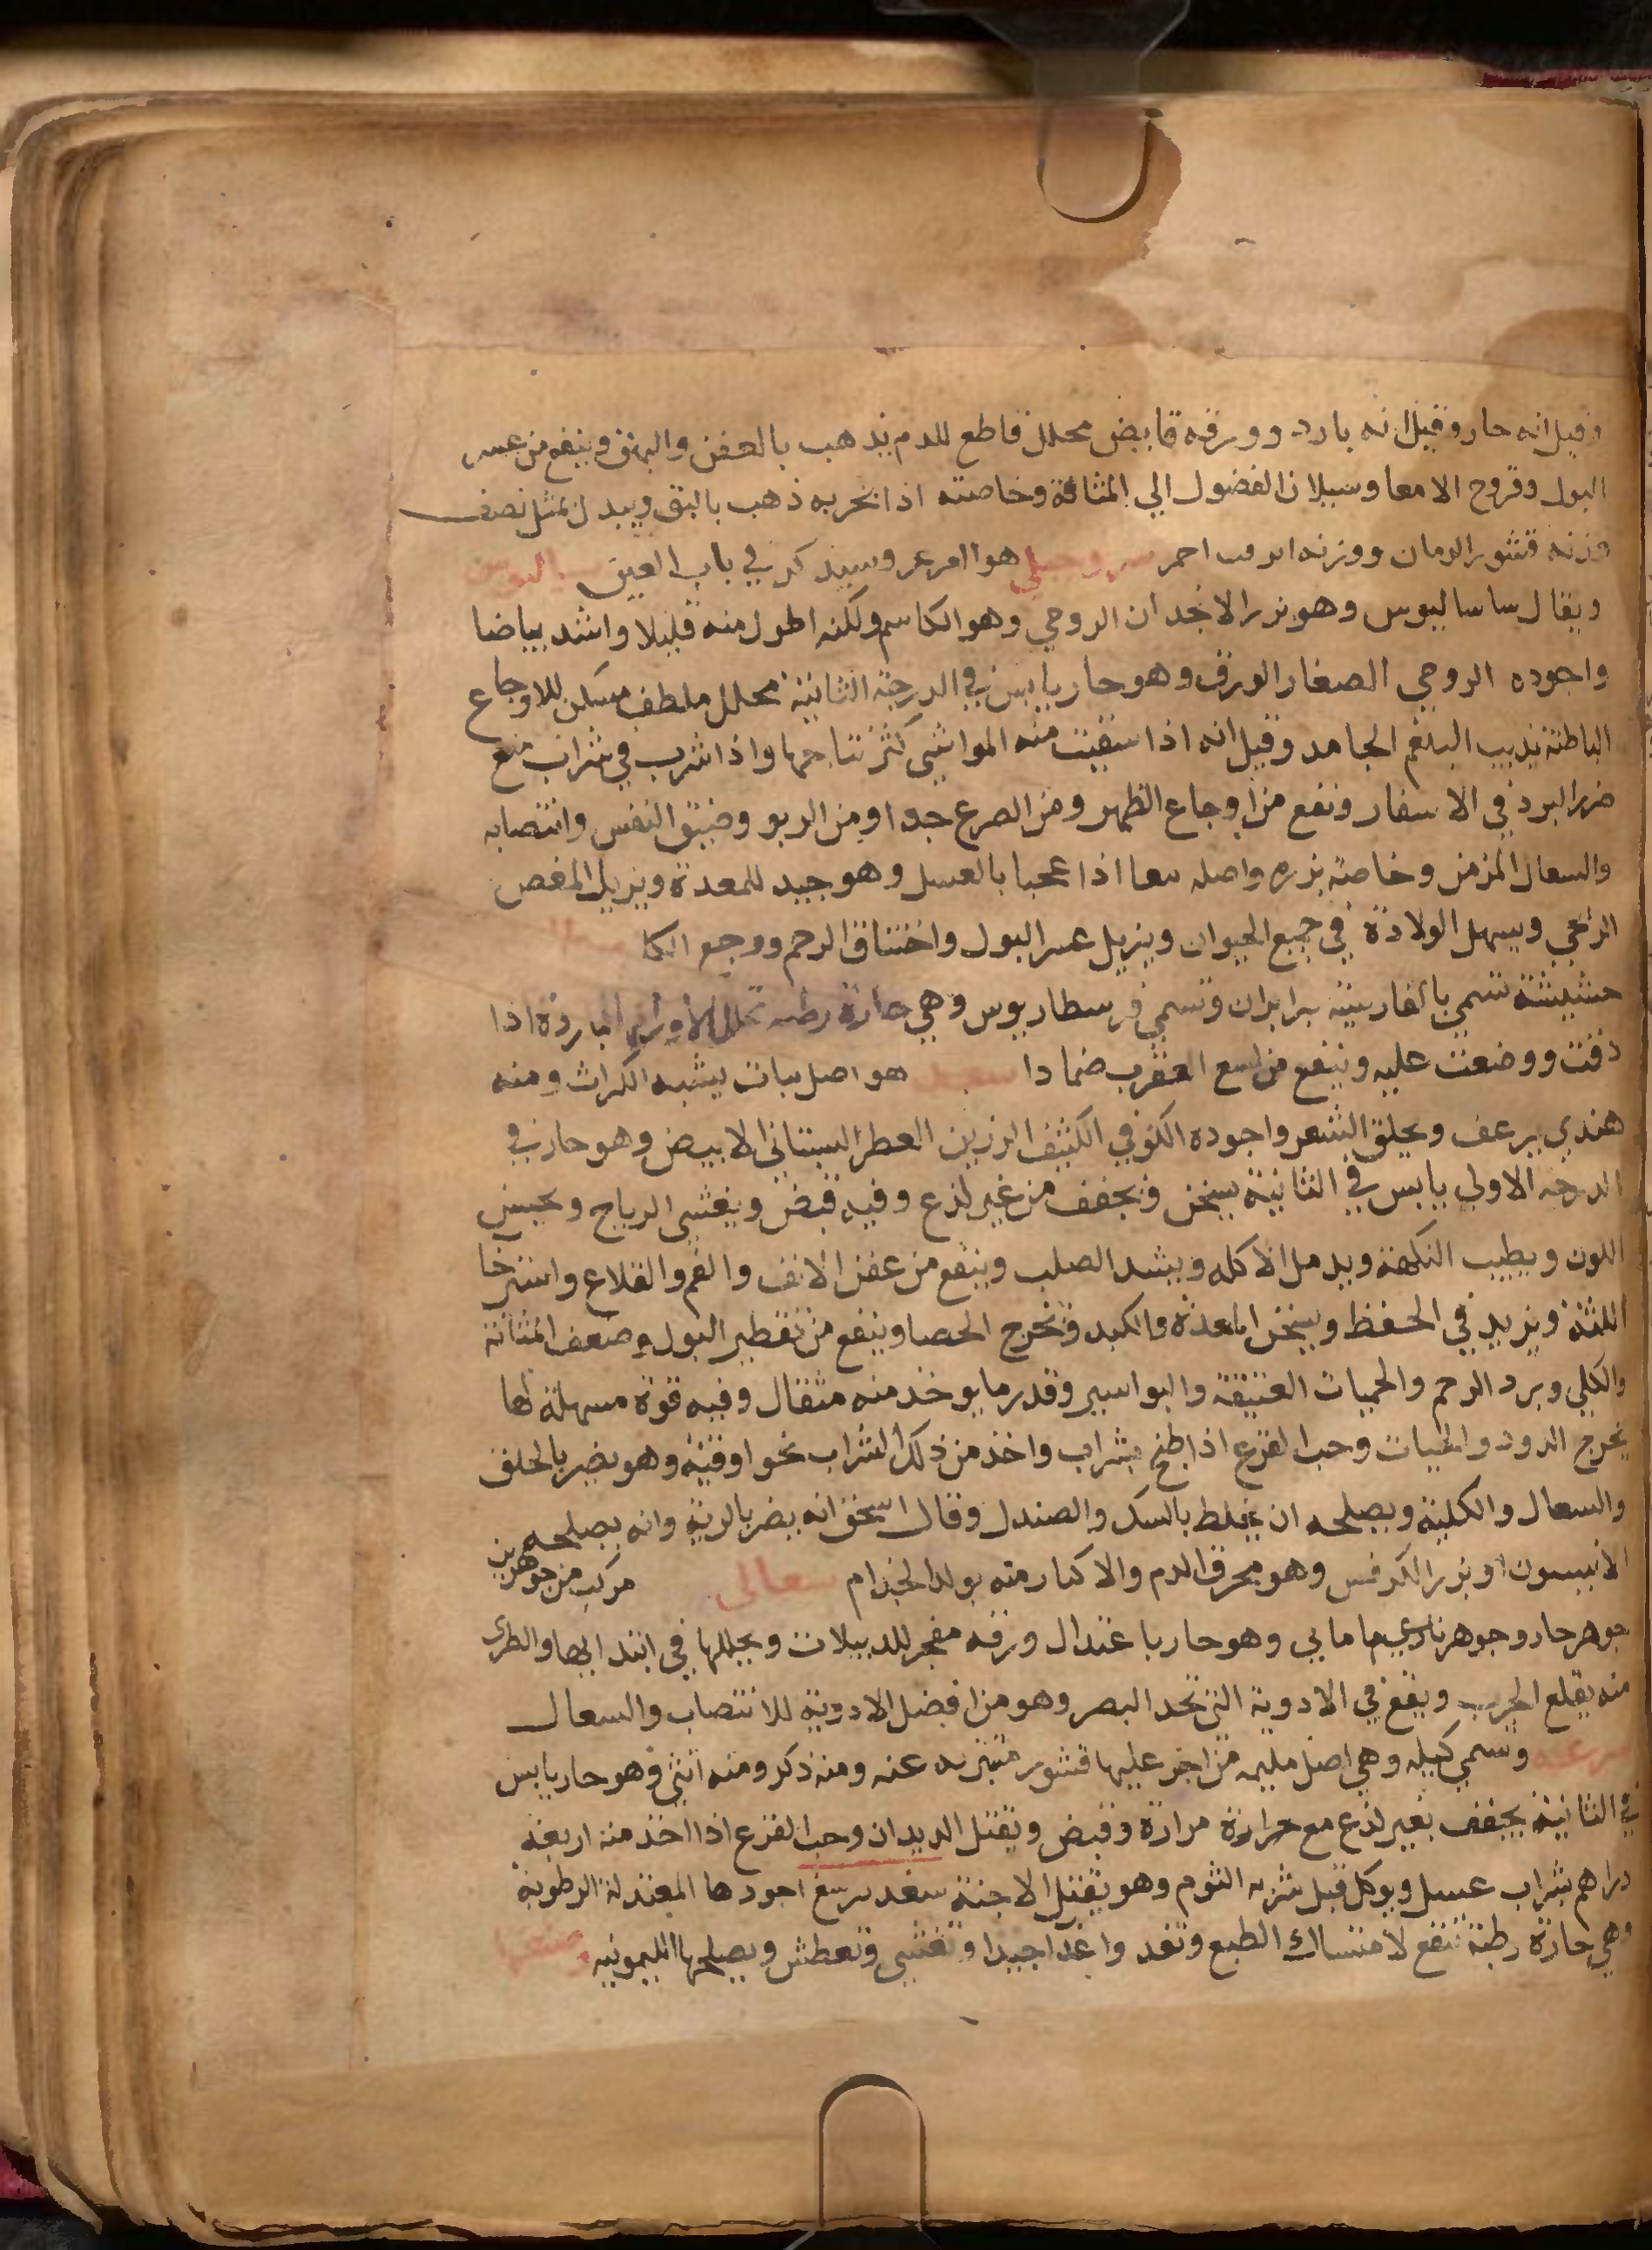 وقيل انه حار وقيل انه بارد وورقه قابض محلل قاطع للدم يذهب بالعفن والبهق وينفع من عسر
البول وقروح الامعا وسيلان الفضول الي المثانة وخاصته اذا بخر به ذهب بالبق وبيدل بمثل نصف
وزنه قشور الرمان ووزنه احمر هو العرعر وسيذكر في باب العين
ويقال ساساليوس وهو بزر الانجدان الرومي وهو الكاسم ولكنه اطول منه قليلا واشد بياضا
واجوده الرومي الصغار الورق وهو حار يابس في الدرجة الثانية محلل ملطف مسكن للاوجاع
الباطنة يذيب البلغم الجامد وقيل انه اذا سقيت منه المواشي كثر نتاجها واذا شرب في شراب منع
ضرر البرد في الاسفار ونفع من اوجاع الظهر ومن الصرع جدا ومن الربو وضيق النفس وانتصابه
والسعال المزمن وخاصة بزره واصله معا اذا عجنا بالعسل وهو جيد للمعدة ويزيل المغص
الريحي ويسهل الولادة في جميع الحيوان ويزيل عسر البول واختناق الرحم ووجع الكلا
حشيشة تسمي بالفارسية برابران وتسمي فرسطاريوس وهي حارة رطبه تحلل الاورام الباردة اذا
دقت ووضعت عليه وينفع من لسع العقرب ضمادا هو اصل نبات يشبه الكراث ومنه
هندي يرعف ويحلق الشعر واجوده الكوفي الكثيف الرزين العطر البستاني الابيض وهو حار في
الدرجه الاولي يابس في الثانية يسخن ويجفف من غير لذع وفيه قبض ويفشي الرياح ويحسن
اللون ويطيب النكهة ويدمل الاكله ويشد الصلب وينفع من عفن الانف والفم والقلاع واسترخا
اللثة ويزيد في الحفظ ويسخن المعدة والكبد ويخرج الحصا وينفع من تقطير البول وضعف المثانة
والكلي وبرد الرحم والحميات العتيقة والبواسير وقدر ما يوخذ منه مثقال وفيه قوة مسهلة لها
يخرج الدود والحيات وحب القرع اذا طبخ بشراب واخذ من ذلك الشراب نحو اوقية وهو يضر بالحلق
والسعال والكلية ويصلحه ان يخلط بالسك والصندل وقال اسحق انه يضر بالرية وانه يصلحه
الانيسون او بزر الكرفس وهو محرق الدم والاكثار منه يولد الجذام سعالى مركب من جوهرين
جوهر حار وجوهر مايي وهو حار باعتدال ورقه مفجر للدبيلات ويحللها في ابتدايها والطري
منه يقلع الجرب ويقع في الادوية التي تحد البصر وهو من افضل الادوية للانتصاب والسعال
وسمي كيله وهي اصل عليها قشور عنه ومنه ذكر ومنه انثي وهو حار يابس
في الثانية يجفف بغير لذع مع حرارة مرارة وقبض ويقتل الديدان وحب القرع اذا اخذ منه اربعة
دراهم بشراب عسل ويوكل قبل شربه الثوم وهو يقتل الاجنة اجودها المعتدلة الرطوبة
وهي حارة رطبة تنفع لامتساك الطبع وتغدوا غدا جيدا وتغشي وتعطش ويصلحها الليمونيه